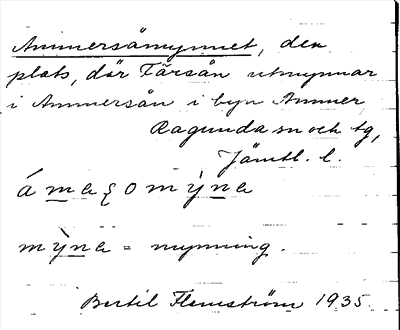 Ammersåmynnet, den
plats, där Färsån utmynnar
i Ammersån i byn Ammer
Ragunda sn och tg,
Jämtl. l.
á m a ξ o m ỳ n a
m ỳ n a = mynning.
Bertil Flemström 1935.